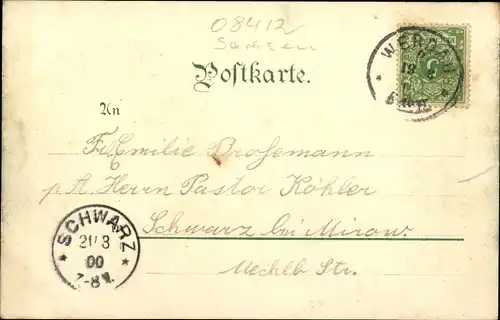 08412
Sachsen
Postkarte.
WERDAU
19 3
An
Frl. Emilie Brosemann
p. A. Herrn Pastor Köhler
Schwarz bei Mirow.
Mecklb Str.
SCHWARZ
20 3
00
7-8V.